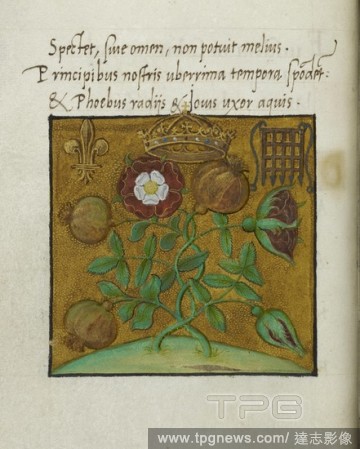 Spectet, sive omen, non potuit melius.
Principibus nostris uberrima tempora spōdet:
& Phoebus radijs & Iovis uxor aquis.
TPG
www.tpgnews.com/達志影像